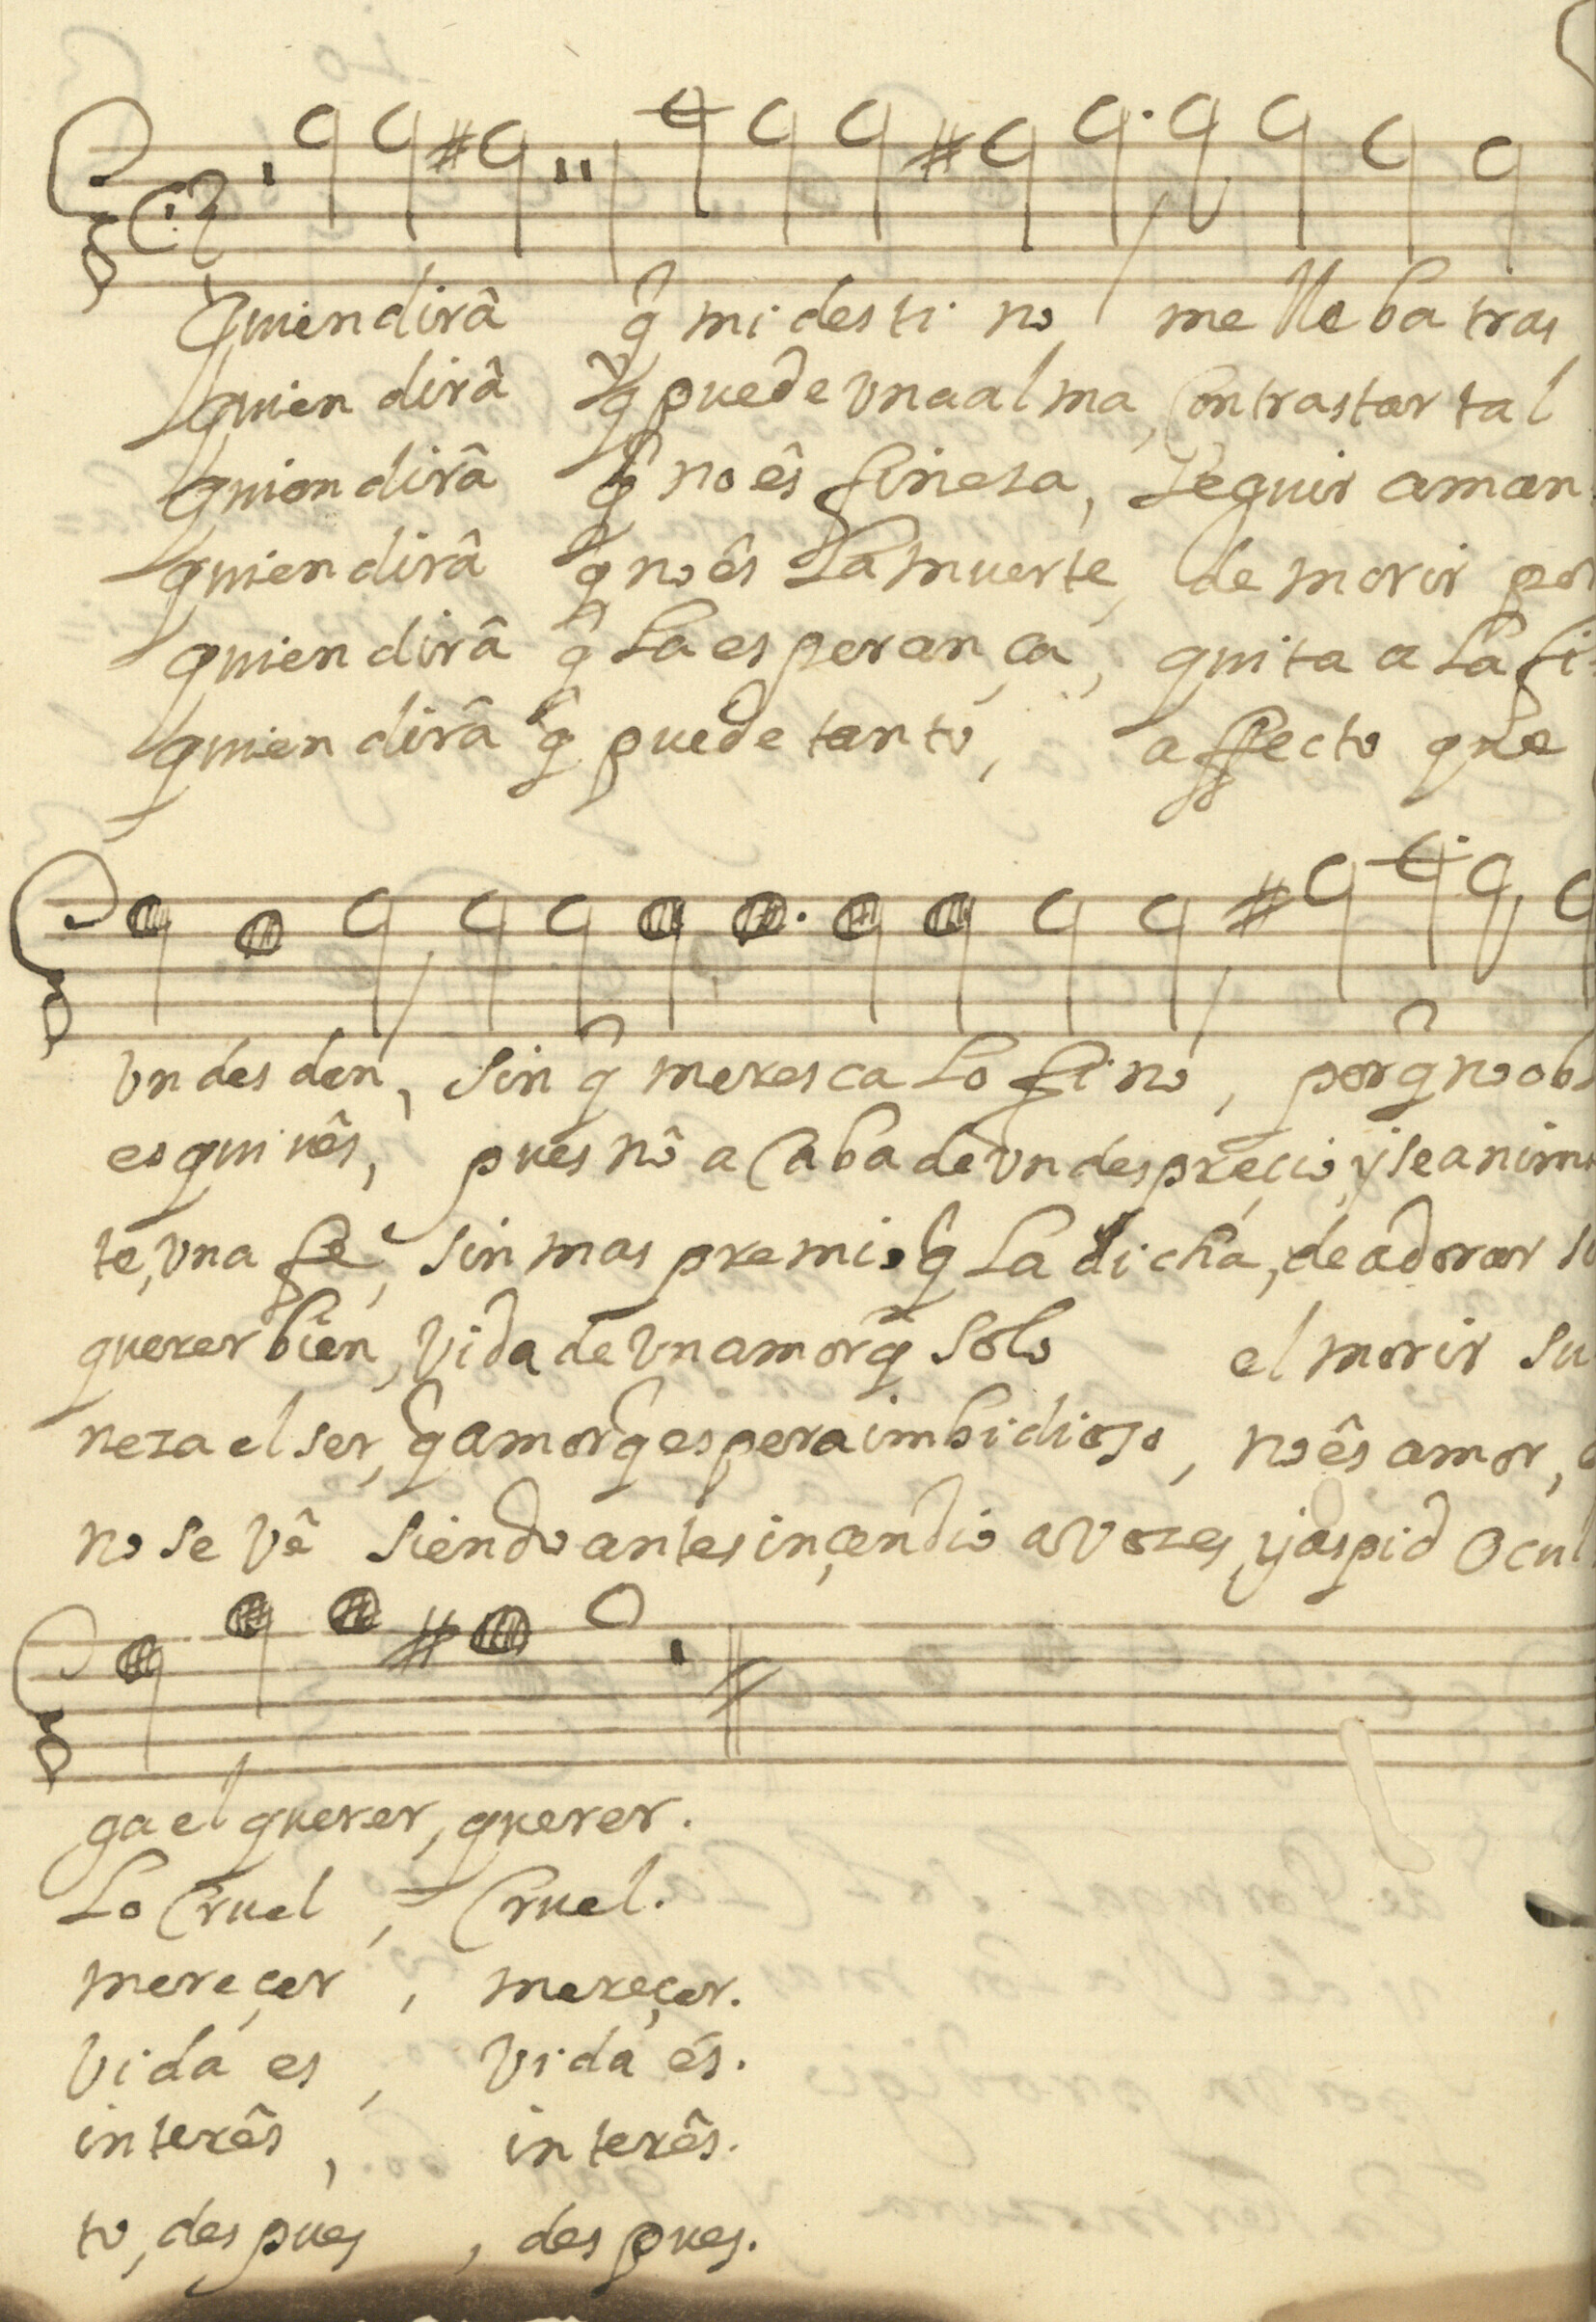 Quien dirâ q̂ mi destino, me lleba tras
quien dirâ q̂ puede vna alma, Contrastar tal
quien dirâ q̂ no ês fineza, seguir aman
quien dirâ q̂ no ês La muerte, de morir por
quien dirâ q̂ La esperança, quita a La fi
quien dirâ q̂ puede tanto, affecto que
vn desden, sin q̂ meresca Lo fino, porq̂ no ob
esquivês, pues nô acaba de vn despreçio, y se anim
te, vna fe, sin mas premio q̂ La dicha, de adorar su
querer bien, vida de vn amor q̂ solo el morir su
neza el ser, q̂ amor q̂ espera imbidiozo, no ês amor,
no se vê siendo antes inçendio a vozes, y aspid ocul
ga el querer, querer.
Lo Cruel, Cruel.
mereçer, mereçer.
vida es, vida és.
interês, interês.
to, despues, despues.